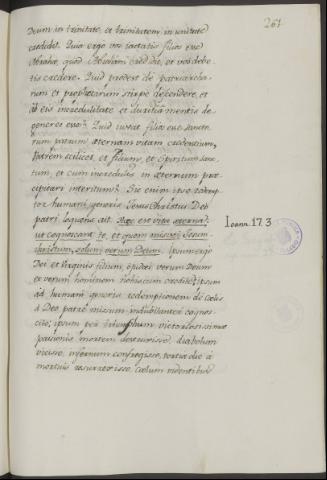 261
Deum in trinitate, et trinitatem in unitate
credidit. Quia ergo vos iactatis filios esse
Abrahæ, quod Abraham credidit, et vos debe-
tis credere. Quid prodest de patriarcha-
rum et prophetarum stirpe descendere, et
ab eis incredulitate et duritia mentis de-
generes esse? Quid iuvat filios esse sancto-
rum patrum æternam vitam credentium,
patrem scilicet, et filium, et spiritum sanc-
tum, et cum incredulis in æternum præ-
cipitari interitum? Sic enim ipse redemp-
tor humani generis Iesus Christus Deo
patri loquens ait. Hæc est vita æterna,
ut cognoscant te, et quem misisti Iesum
christum, solum verum Deum. Ipsum ergo
Ioann. 17. 3
Dei et virginis filium, ipsum verum Deum
et verum hominem nobiscum credite; ipsum
ad humani generis redemptionem de cœlis
a Deo patre missum indubitanter cognos-
cite; ipsum per triumphum victoriosissimæ
passionis mortem destruxisse, diabolum
vicisse, infernum confregisse, tertia die a
mortuis resurrexisse, cœlum videntibus